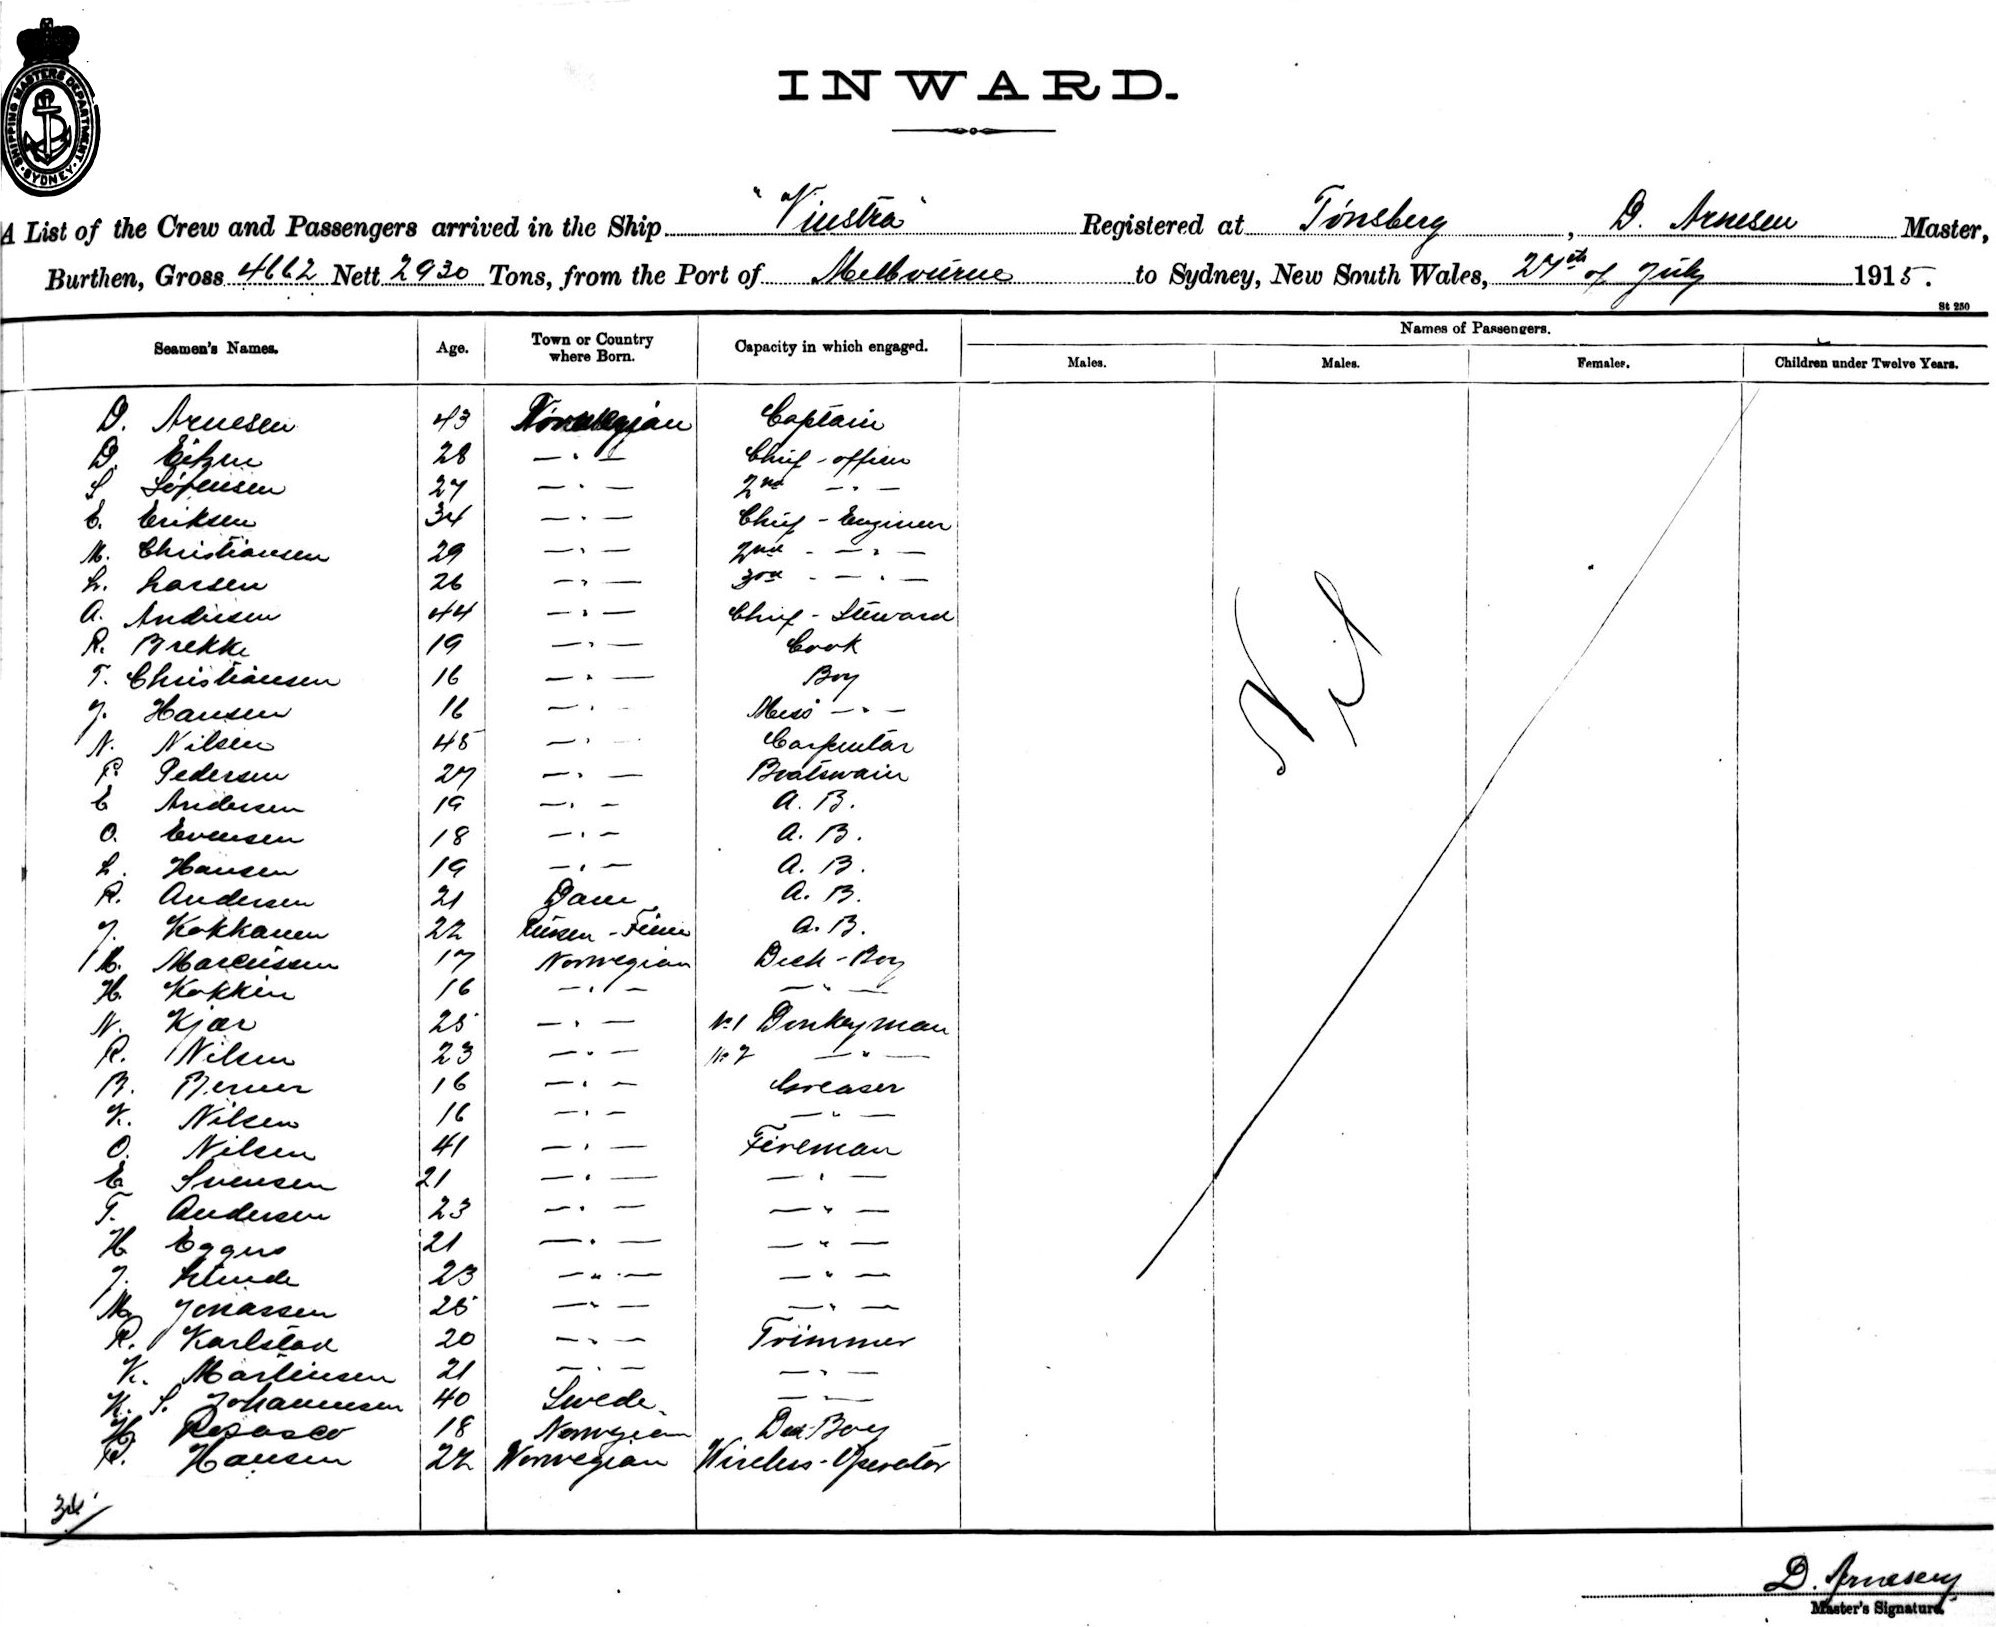 SHIPPING MASTERS DEPARTMENT · SYDNEY ·
INWARD.
A List of the Crew and Passengers arrived in the Ship "Vinstra" Registered at Tønsberg, D. Arnesen Master,
Burthen, Gross 4662 Nett 2930 Tons, from the Port of Melbourne to Sydney, New South Wales, 27th of July 1915.
St 250
Names of Passengers.
Seamen's Names. Age. Town or Country where Born. Capacity in which engaged. Males. Males. Females. Children under Twelve Years.
D. Arnesen 43 Norwegian Captain
D. Eitzen 28 — " — Chief - officer
S Sørensen 27 — " — 2nd — " —
E. Eriksen 34 — " — Chief - Engineer
M. Christiansen 29 — " — 2nd - — " —
L. Larsen 26 — " — 3rd - — " —
A. Andersen 44 — " — Chief - Steward
R. Brekke 19 — " — Cook
T. Christiansen 16 — " — Boy
J. Hansen 16 — " — Mess — " —
N. Nilsen 45 — " — Carpentar
P. Pedersen 27 — " — Boatswain
E Andersen 19 — " — A. B.
O. Evensen 18 — " — A. B.
L. Hansen 19 — " — A. B.
R. Andersen 21 Dane A. B.
J. Kokkanen 22 Russen - Finn A. B.
M. Marcussen 17 Norwegian Deck - Boy
H. Kokkin 16 — " — — " —
N. Kjær 25 — " — No 1 Donkeyman
R. Nilsen 23 — " — No 2 — " —
B. Berner 16 — " — Greaser
K. Nilsen 16 — " — — " —
O. Nilsen 41 — " — Fireman
E Svensen 21 — " — — " —
T. Andersen 23 — " — — " —
H Eggers 21 — " — — " —
J. 23 — " — — " —
M. Jonassen 25 — " — — " —
R. Karlstad 20 — " — Trimmer
K. Martinsen 21 — " — — " —
K. S. Johannesen 40 Swede — " —
H. 18 Norwegian Boy
R. Hansen 22 Norwegian Wireless - Operator
Nil
34
D. Arnesen
Master's Signature.